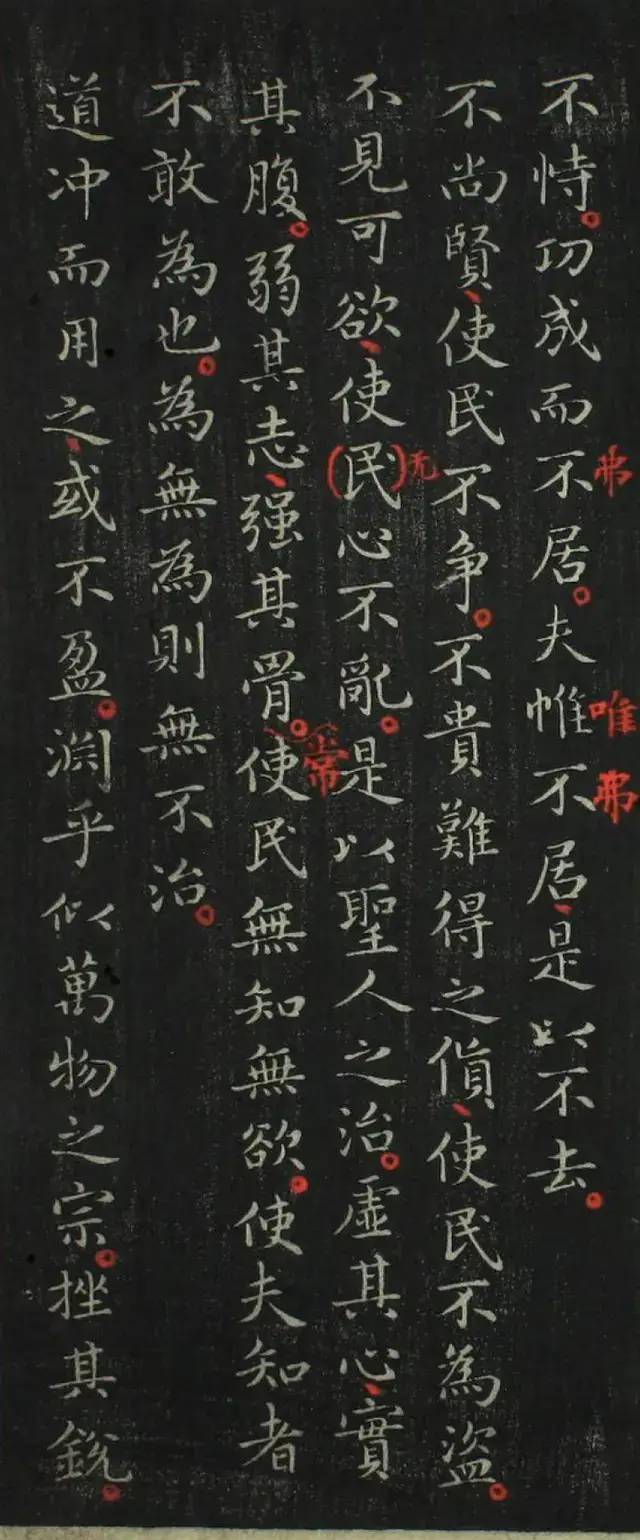 不恃。功成而不居。夫惟不居、是以不去。
弗
唯
弗
不尚賢、使民不争。不貴難得之貨、使民不為盗。
不見可欲、使(民)心不亂。是以聖人之治。虚其心、實
无
其腹。弱其志、强其骨。使民無知無欲。使夫知者
常
不敢為也。為無為則無不治。
道冲而用之、或不盈。渊乎似萬物之宗。挫其銳。